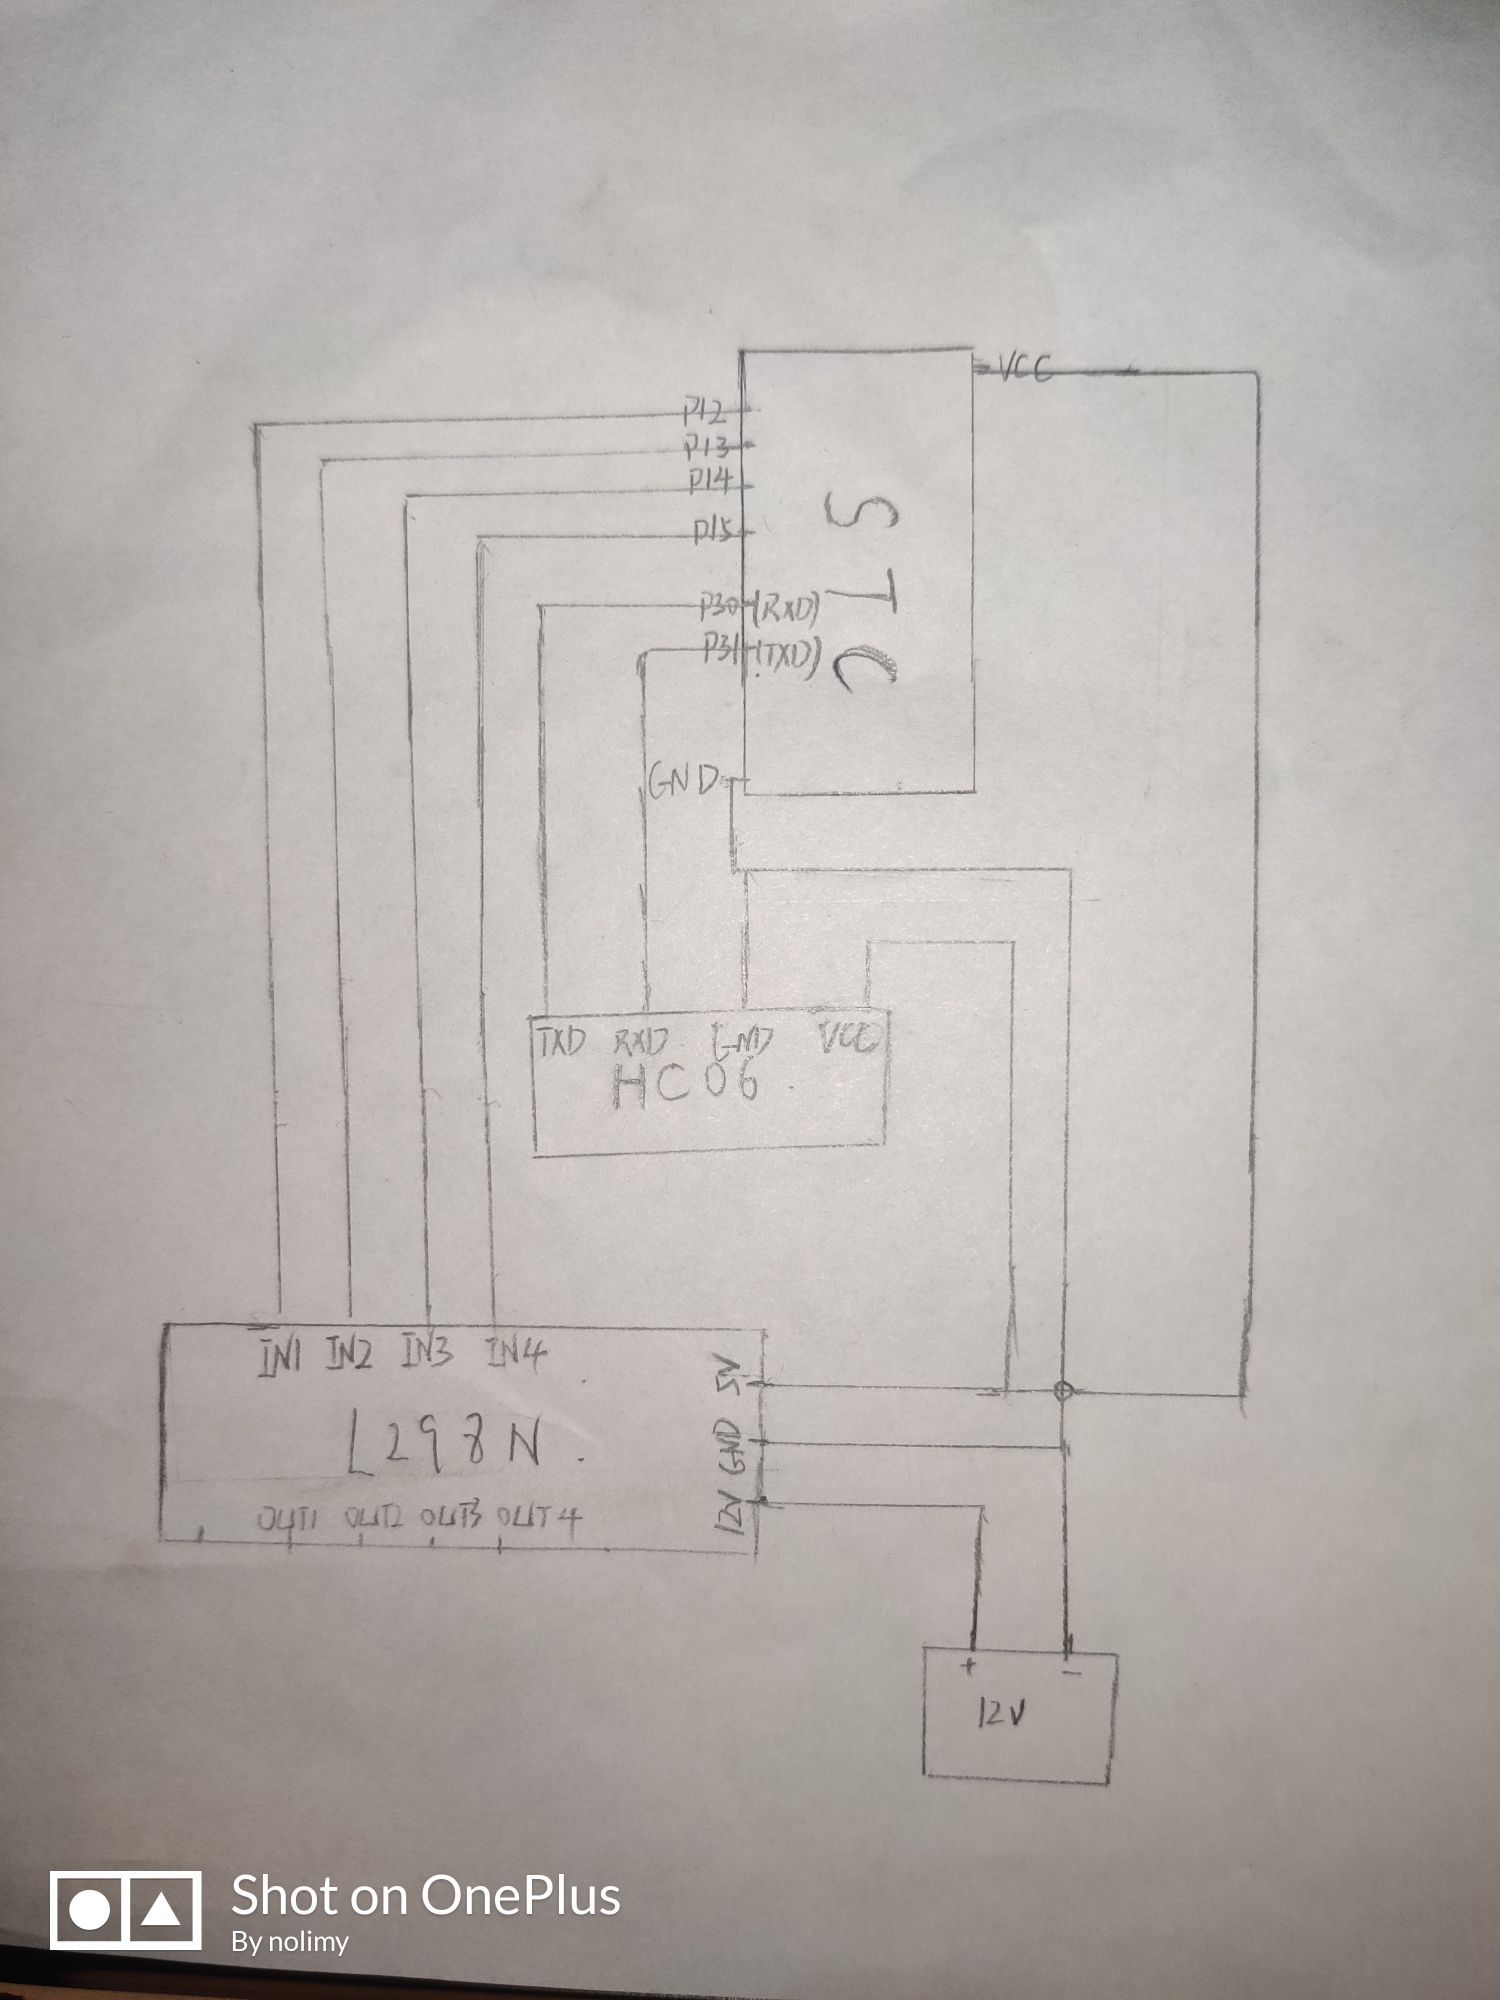 VCC
P12
P13
P14
P15
STC
P30 (RXD)
P31 (TXD)
GND
TXD RXD GND VCC
HC06
IN1 IN2 IN3 IN4
5V
L298N
GND
12V
OUT1 OUT2 OUT3 OUT4
+ -
12V
Shot on OnePlus
By nolimy